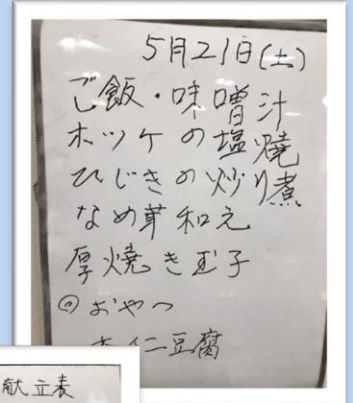 5月21日(土)
ご飯・味噌汁
ホッケの塩焼
ひじきの炒り煮
なめ茸和え
厚焼き玉子
◎おやつ
杏仁豆腐
献立表